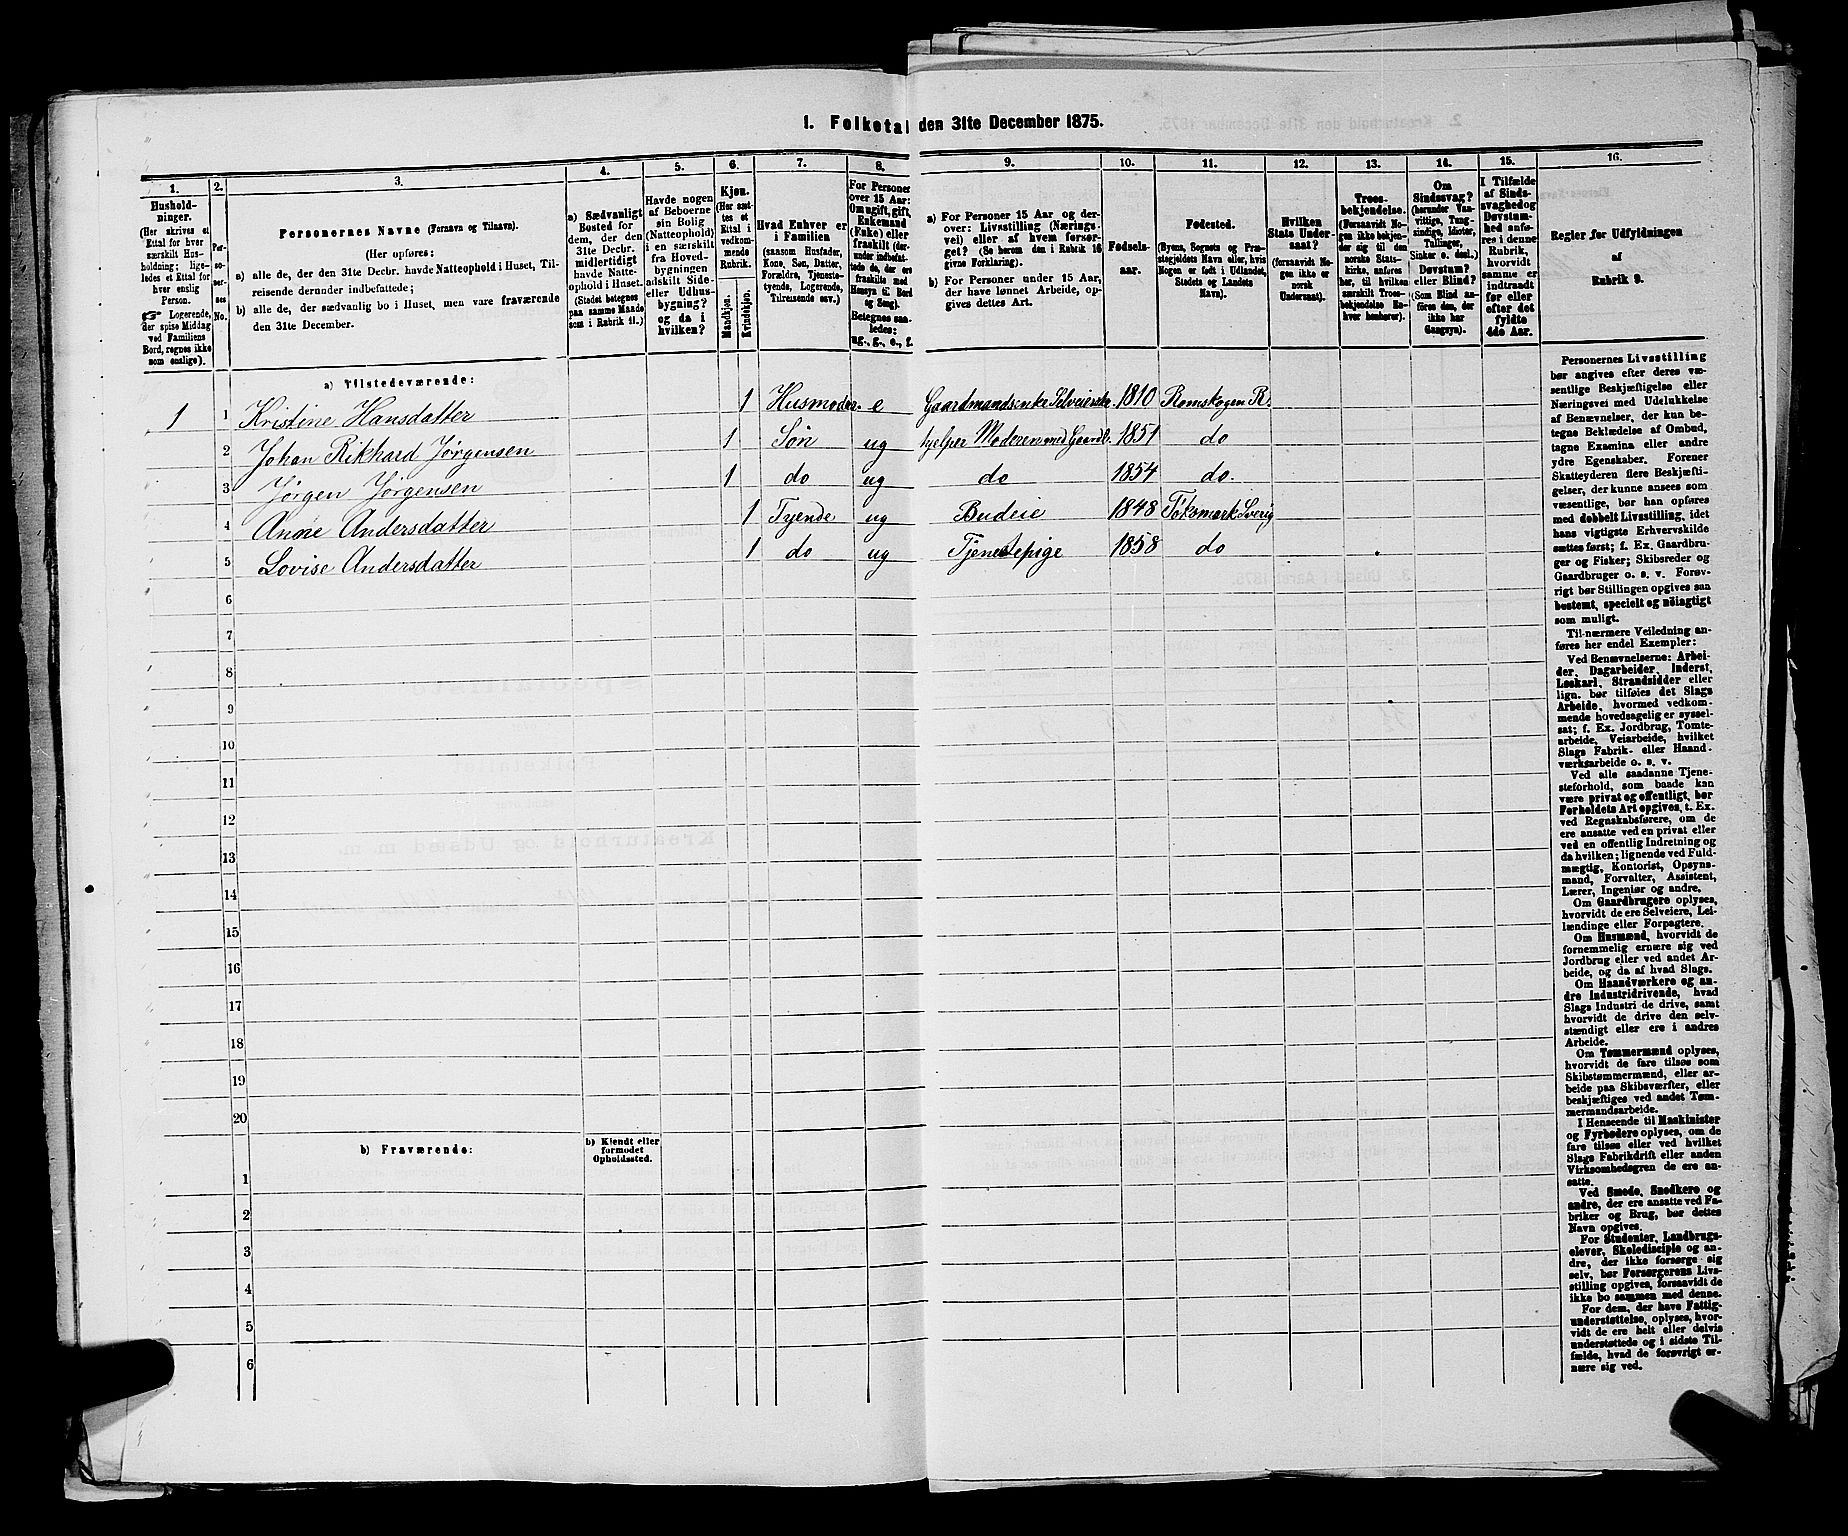 1. Folketal den 31te December 1875.
1. 2. 3. 4. 5. 6. 7. 8. 9. 10. 11. 12. 13. 14. 15. 16.
Hushold-
ninger.
(Her skrives et
Ettal for hver
særskilt Hus-
holdning; lige-
ledes et Ettal for
hver enslig
Person.
☞ Logerende,
der spise Middag
ved Familiens
Bord, regnes ikke
som enslige).
Per-
so-
ner-
nes
No.
Personernes Navne (Fornavn og Tilnavn).
(Her opføres:
a) alle de, der den 31te Decbr. havde Natteophold i Huset, Til-
reisende derunder indbefattede;
b) alle de, der sædvanlig bo i Huset, men vare fraværende
den 31te December.
a) Sædvanligt
Bosted for
dem, der den
31te Decbr.
midlertidigt
havde Natte-
ophold i Huset.
(Stedet betegnes
paa samme Maade
som i Rubrik 11.)
Havde nogen
af Beboerne
sin Bolig
(Natteophold)
i en særskilt
fra Hoved-
bygningen
adskilt Side-
eller Udhus-
bygning?
og da i
hvilken?
Kjøn.
(Her sæt-
tes et
Ettal i
vedkom-
mende
Rubrik.
Mandkjøn.
Kvindekjøn.
Hvad Enhver er
i Familien
(saasom Husfader,
Kone, Søn, Datter,
Forældre, Tjeneste-
tyende, Logerende,
Tilreisende osv.)
For Personer
over 15 Aar:
Om ugift, gift,
Enkemand
(Enke) eller
fraskilt (der-
under indbefat-
tede de, der ere
fraskilte med
Hensyn til Bord
og Seng).
Betegnes saa-
ledes:
ug., g., e., f.
a) For Personer 15 Aar og der-
over: Livsstilling (Nærings-
vei) eller af hvem forsør-
get? (Se herom den i Rubrik 16
givne Forklaring).
b) For Personer under 15 Aar,
der have lønnet Arbeide, op-
gives dettes Art.
Fødsels-
aar.
Fødested.
(Byens, Sognets og Præ-
stegjeldets Navn eller, hvis
Nogen er født i Udlandet,
Stedets og Landets
Navn).
Hvilken
Stats Under-
saat?
(forsaavidt No-
gen ikke er
norsk
Undersaat).
Troes-
bekjendelse.
(Forsaavidt No-
gen ikke bekjen-
der sig til den
norske Stats-
kirke, anføres
her, til hvilken
særskilt Troes-
bekjendelse En-
hver henhører).
Om
Sindssvag?
(herunder Van-
vittige, Tung-
sindige, Idioter,
Tullinger,
Sinker o. desl.)
Døvstum?
eller Blind?
(Som Blind an-
føres den, der
ikke har
Gangsyn).
I Tilfælde
af Sinds-
svaghed og
Døvstum-
hed anfø-
res i denne
Rubrik,
hvorvidt
samme er
indtraadt
før eller
efter det
fyldte
4de Aar.
Regler for Udfyldningen
af
Rubrik 9.
a) Tilstedeværende:
1 1 Kristine Hansdatter 1 Husmoder. e Gaardmandsenke Selveierske 1810 Romskogen R.
2 Johan Rikhard Jørgensen 1 Søn ug hjelper Moderen med Gaardb. 1851 do
3 Jørgen Jørgensen 1 do ug do 1854 do.
4 Anne Andersdatter 1 Tyende ug Budeie 1848 Töksmark Sverig
5 Lovise Andersdatter 1 do ug Tjenestepige 1858 do
6
7
8
9
10
11
12
13
14
15
16
17
18
19
20
b) Fraværende:
b) Kjendt eller
formodet
Opholdssted.
1
2
3
4
5
6
Personernes Livsstilling
bør angives efter deres væ-
sentlige Beskjæftigelse eller
Næringsvei med Udelukkelse
af Benævnelser, der kun be-
tegne Beklædelse af Ombud,
tagne Examina eller andre
ydre Egenskaber. Forener
Skatteyderen flere Beskjæfti-
gelser, der kunne ansees som
væsentlige, bør han opføres
med dobbelt Livsstilling, idet
hans vigtigste Erhvervskilde
sættes først; f. Ex. Gaardbru-
ger og Fisker; Skibsreder og
Gaardbruger o. s. v. Forøv-
rigt bør Stillingen opgives saa
bestemt, specielt og nøiagtigt
som muligt.
Til nærmere Veiledning an-
føres her endel Exempler:
Ved Benævnelserne: Arbei-
der, Dagarbeider, Inderst,
Løskarl, Strandsidder eller
lign. bør tilføies det Slags
Arbeide, hvormed vedkom-
mende hovedsagelig er syssel-
sat; f. Ex. Jordbrug, Tomte-
arbeide, Veiarbeide, hvilket
Slags Fabrik- eller Haand-
værksarbeide o. s. v.
Ved alle saadanne Tjene-
steforhold, som baade kan
være privat og offentligt, bør
Forholdets Art opgives, t. Ex.
ved Regnskabsførere, om de
ere ansatte ved en privat eller
ved en offentlig Indretning og
da hvilken; lignende ved Fuld-
mægtig, Kontorist, Opsyns-
mand, Forvalter, Assistent,
Lærer, Ingeniør og andre.
Om Gaardbrugere oplyses,
hvorvidt de ere Selveiere, Lei-
lændinge eller Forpagtere.
Om Husmænd, hvorvidt de
fornemmelig ernære sig ved
Jordbrug eller ved andet Ar-
beide, og da af hvad Slags.
Om Haandværkere og an-
dre Industridrivende, hvad
Slags Industri de drive, samt
hvorvidt de drive den selv-
stændigt eller ere i andres
Arbeide.
Om Tømmermænd oplyses,
hvorvidt de fare tilsøs som
Skibstømmermænd, eller ar-
beide paa Skibsværfter, eller
beskjæftiges ved andet Tøm-
mermandsarbeide.
I Henseende til Maskinister
og Fyrbødere oplyses, om de
fare tilsøs eller ved hvilket
Slags Fabrikdrift eller anden
Virksomhedsgren de ere an-
satte.
Ved Smede, Snedkere og
andre, der ere ansatte ved Fa-
briker og Brug, bør dettes
Navn opgives.
For Studenter, Landbrugs-
elever, Skoledisciple og an-
dre, der ikke forsørge sig
selv, bør Forsørgerens Livs-
stilling opgives, forsaavidt de
ikke bo sammen med denne.
For dem, der have Fattig-
understøttelse, oplyses, hvor-
vidt de ere helt eller delvis
understøttede og i sidste Til-
fælde, hvad de forøvrigt er-
nære sig ved.